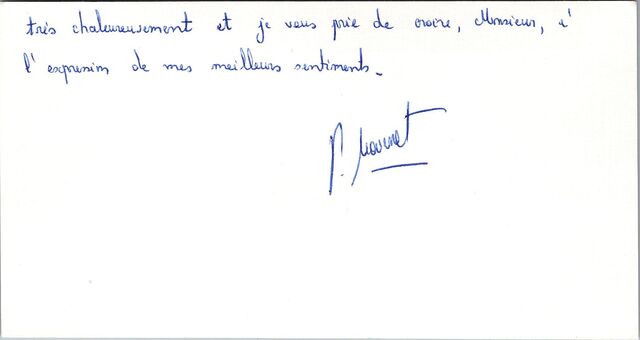 très chaleureusement et je vous prie de croire, Monsieur, à
l'expression de mes meilleurs sentiments.
P.